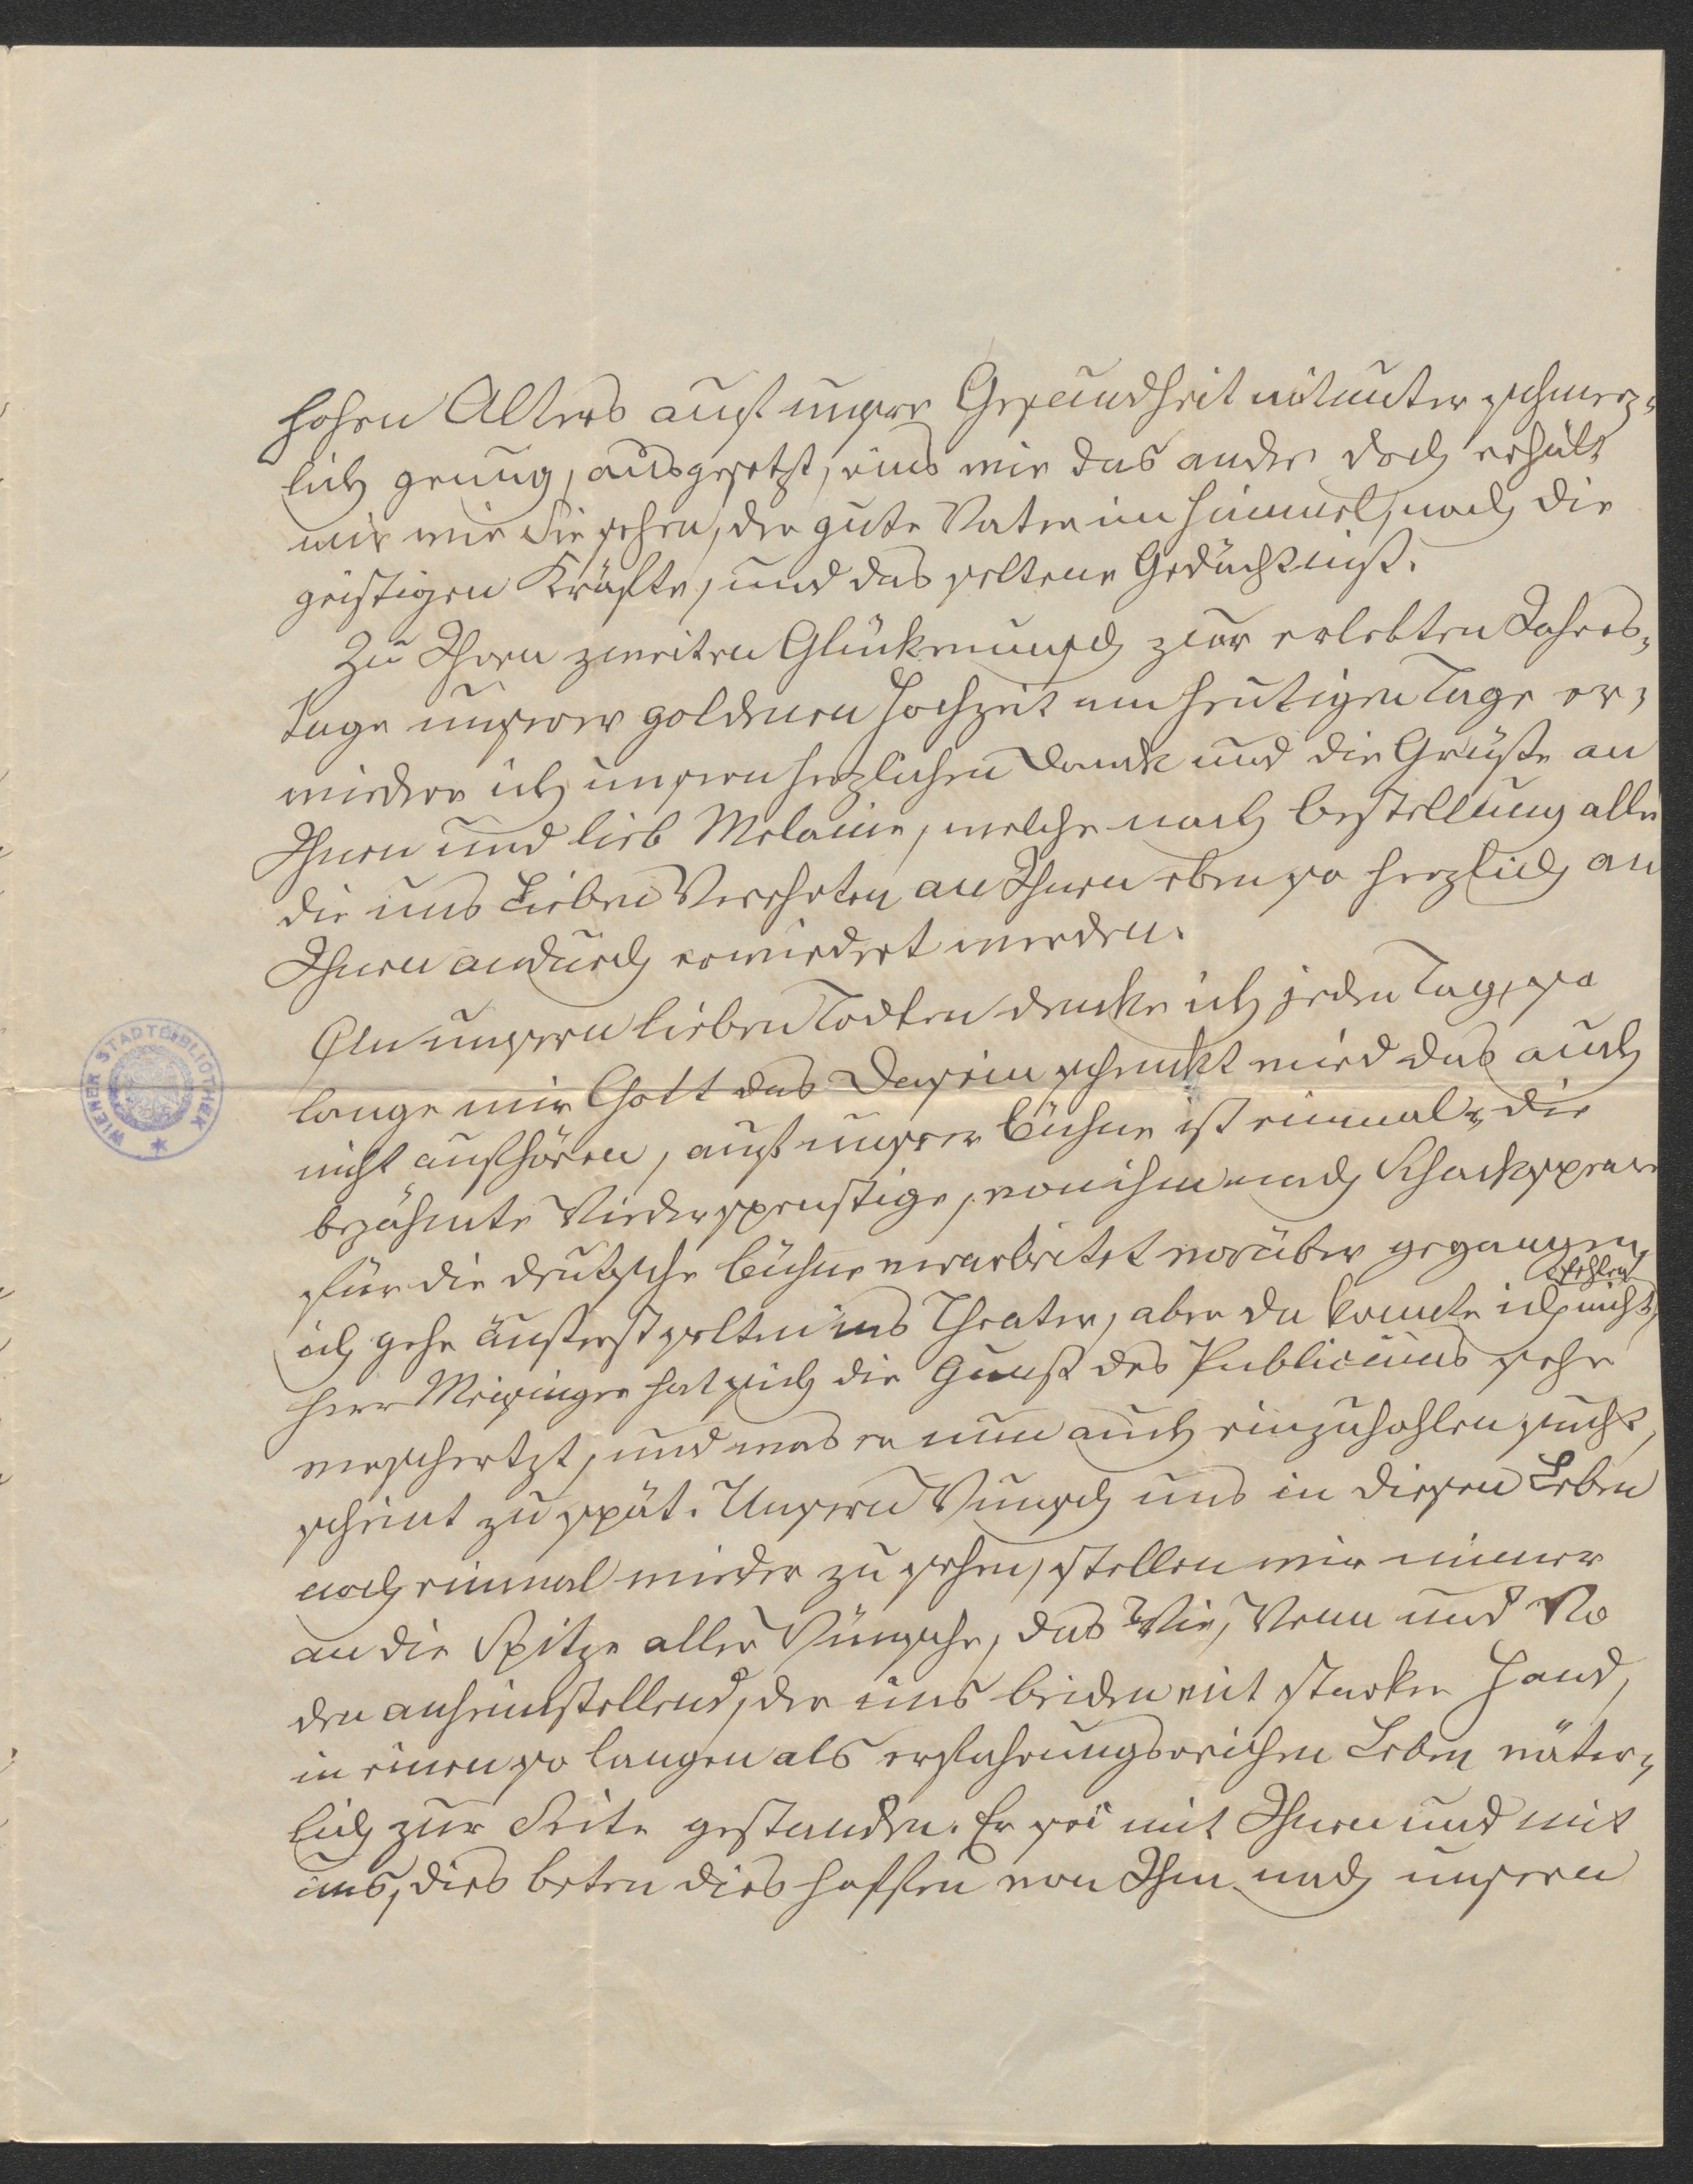 hohen Alters auf unsere Gesundheit mitunter schmerz-
lich genug, ausgesetzt, eins wie das andre doch erhält
mir wie Sie sehen, der gute Vater im Himmel, noch die
geistigen Kräfte, und das seltene Gedächtniß.
Zu Ihren zweiten Glückwunsch zur erlebten Jahres-
tage unserer goldenen Hochzeit am heutigen Tage er-
wiedere ich unsern herzlichen Dank und die Grüße an
Ihnen und lieb Melanie, welche nach Bestellung alle
die uns Lieben Verehrten an Ihnen eben so herzlich an
Ihnen andurch erwiedert werden.
An unsern lieben Todten denke ich jeden Tag, so
lange mir Gott das Dasein schenkt wird das auch
nicht aufhören, auf unsrer Bühne ist einmal die
bezähmte Wiederspenstige, von ihm nach Schackspeare
für die deutsche Bühne verarbeitet vorüber gegangen,
ich gehe äußerst selten ins Theater, aber da konnte ich nicht fehlen,
Herr Meisinger hat sich die Gunst des Publicums sehr
verschertzt, und was er nun auch einzuhohlen sucht,
scheint zu spät. Unsern Wunsch uns in diesen Leben
noch einmal wieder zu sehen, stellen wir immer
an die Spitze aller Wünsche, das Wie, Wenn und Wo
den anheimstellend, der uns beiden mit starker Hand,
in einen so langen als erfahrungsreichen Leben väter-
lich zur Seite gestanden. Er sei mit Ihnen und mit
uns, dies beten dies hoffen von Ihm nach unsern
WIENER STADTBIBLIOTHEK